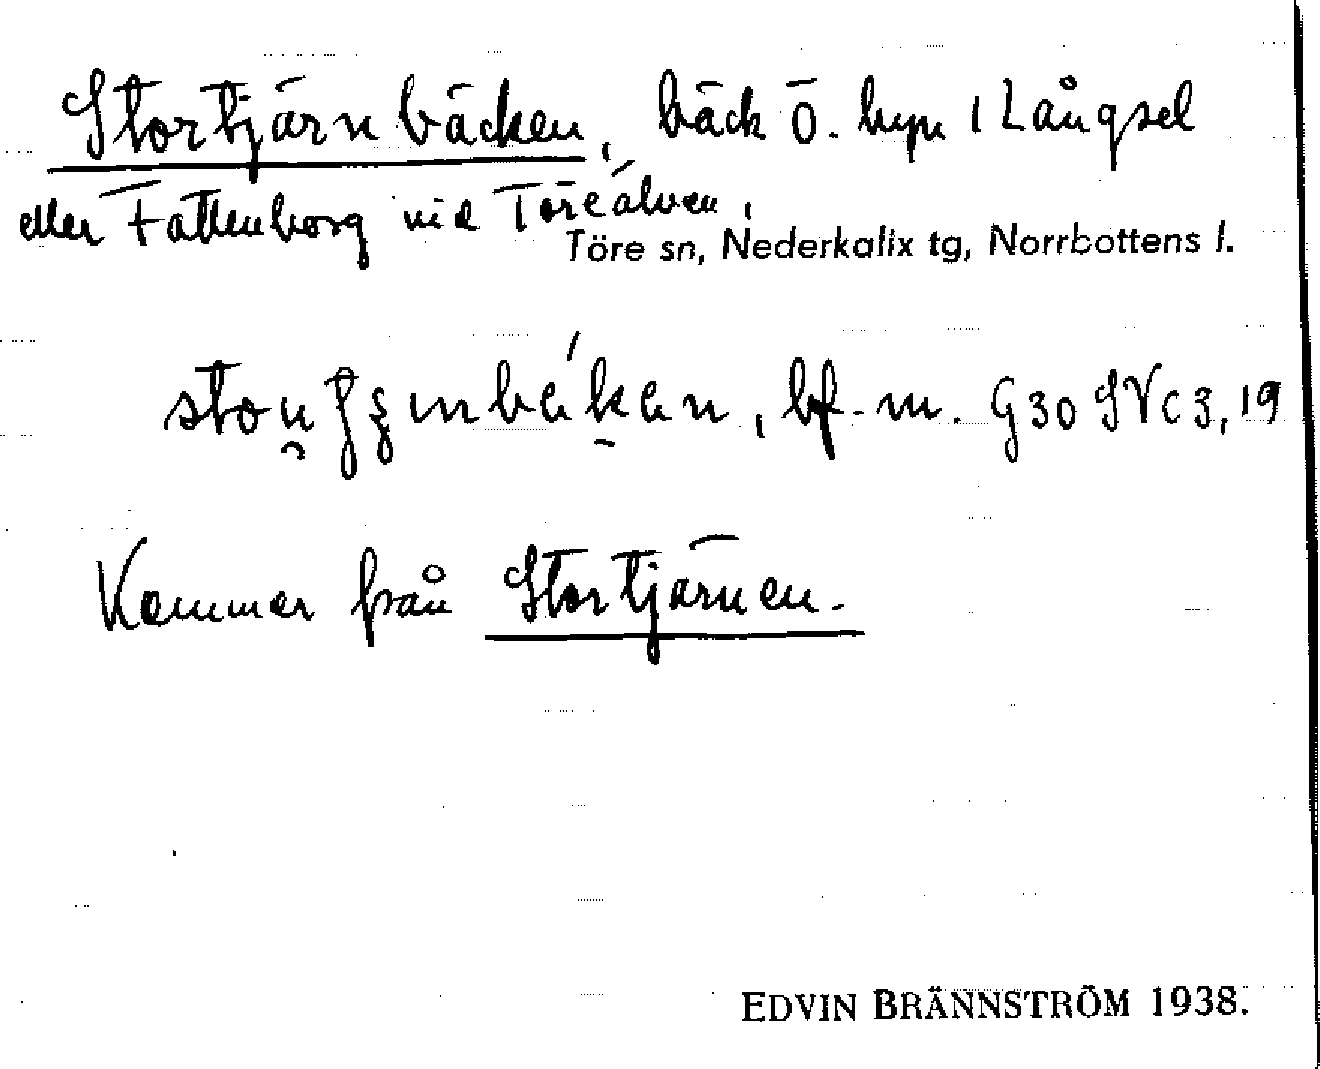 Stortjärnbäcken, bäck Ö. byn i Långsel
eller Fattenborg vid Töreälven,
Töre sn, Nederkalix tg, Norrbottens l.
bf. m. G30 SVc3,19
Kommer från Stortjärnen.
EDVIN BRÄNNSTRÖM 1938.